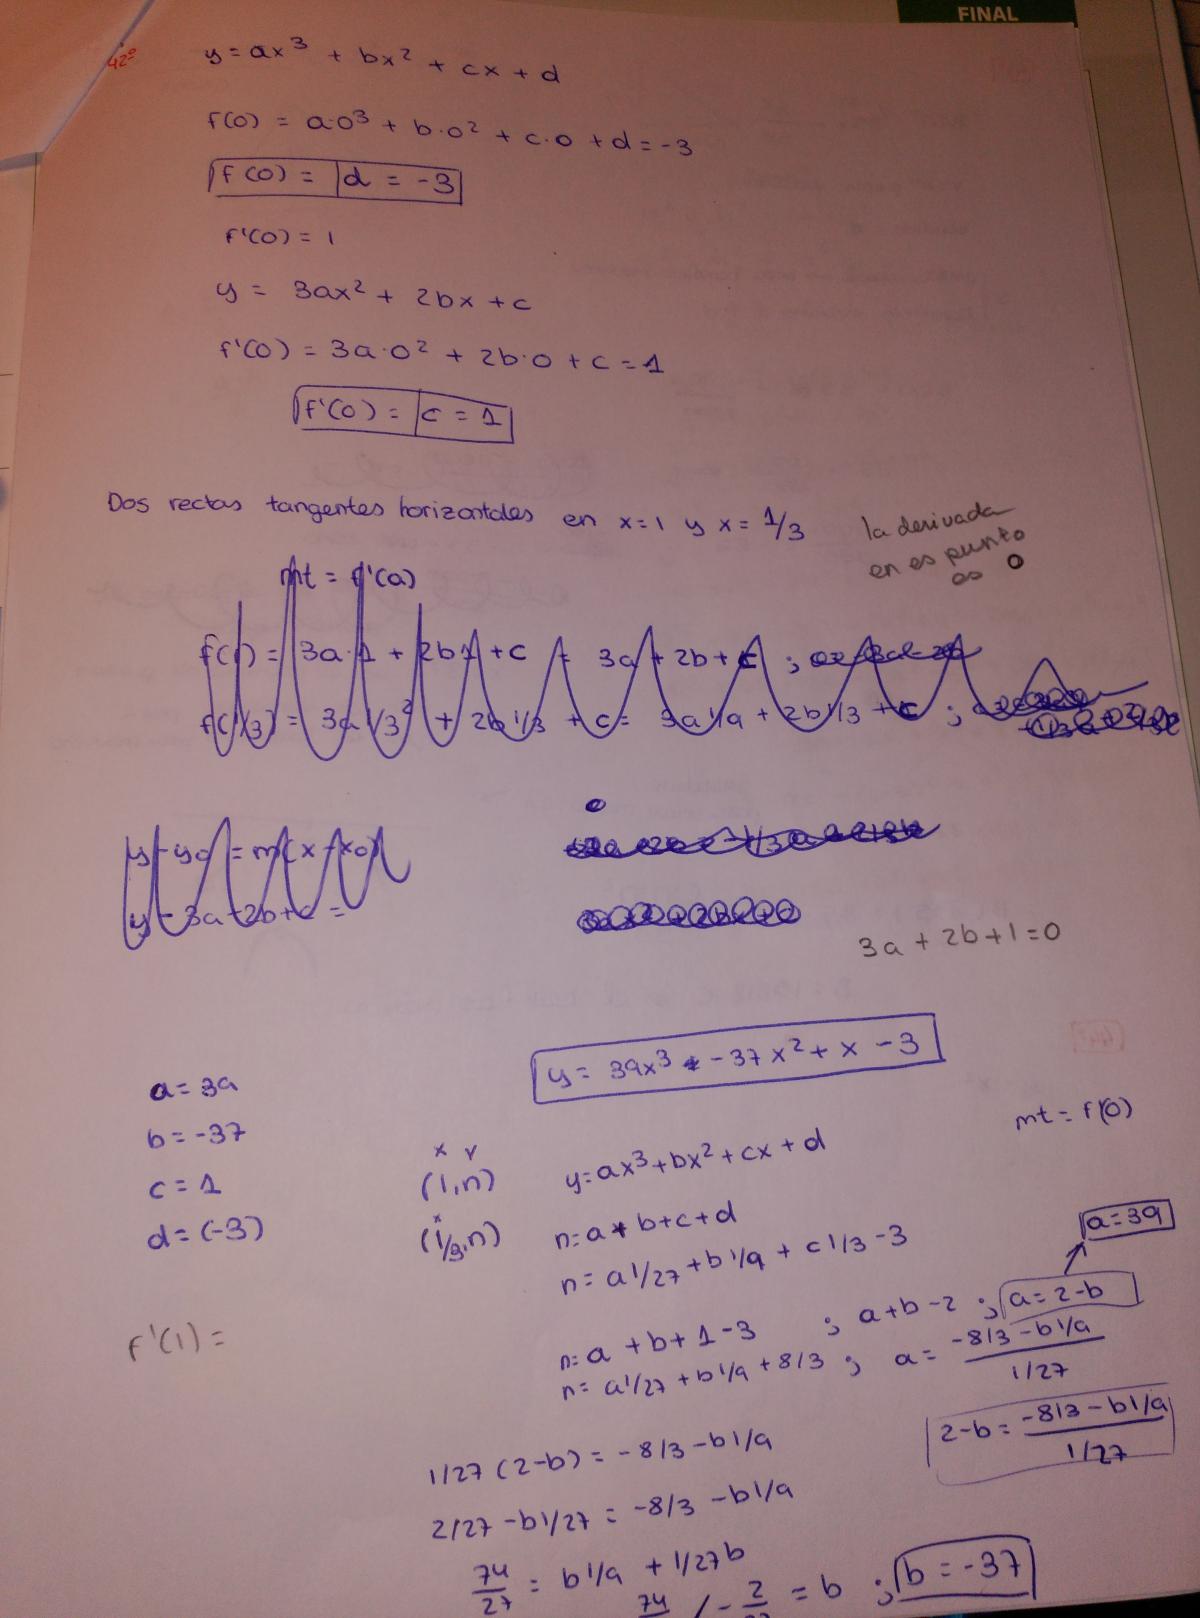 FINAL
42º
y = ax³ + bx² + cx + d
f(0) = a·0³ + b·0² + c·0 + d = -3
f(0) = d = -3
f'(0) = 1
y = 3ax² + 2bx + c
f'(0) = 3a·0² + 2b·0 + c = 1
f'(0) = c = 1
Dos rectas tangentes horizontales en x=1 y x = 1/3
la derivada
en es punto
es 0
mt = f'(a)
f(1) = 3a·1 + 2b1 + c = 3a + 2b + c ;
f(1/3) = 3a 1/3² + 2b 1/3 + c = 3a 1/9 + 2b 1/3 + c ;
y - y0 = m(x - x0)
y - 3a + 2b + c =
3a + 2b + 1 = 0
y = 39x³ - 37x² + x - 3
a = 39
b = -37
c = 1
d = (-3)
mt = f'(0)
x y
(1, n)
x
(1/3, n)
y = ax³ + bx² + cx + d
n = a + b + c + d
n = a 1/27 + b 1/9 + c 1/3 - 3
a = 39
f'(1) =
n = a + b + 1 - 3 ; a + b - 2 ; a = 2 - b
n = a 1/27 + b 1/9 + 8/3 ; a = -8/3 - b 1/9
1/27
2 - b = -8/3 - b 1/9
1/27
1/27 (2 - b) = -8/3 - b 1/9
2/27 - b 1/27 = -8/3 - b 1/9
74/27 = b 1/9 + 1/27 b
= b ; b = -37